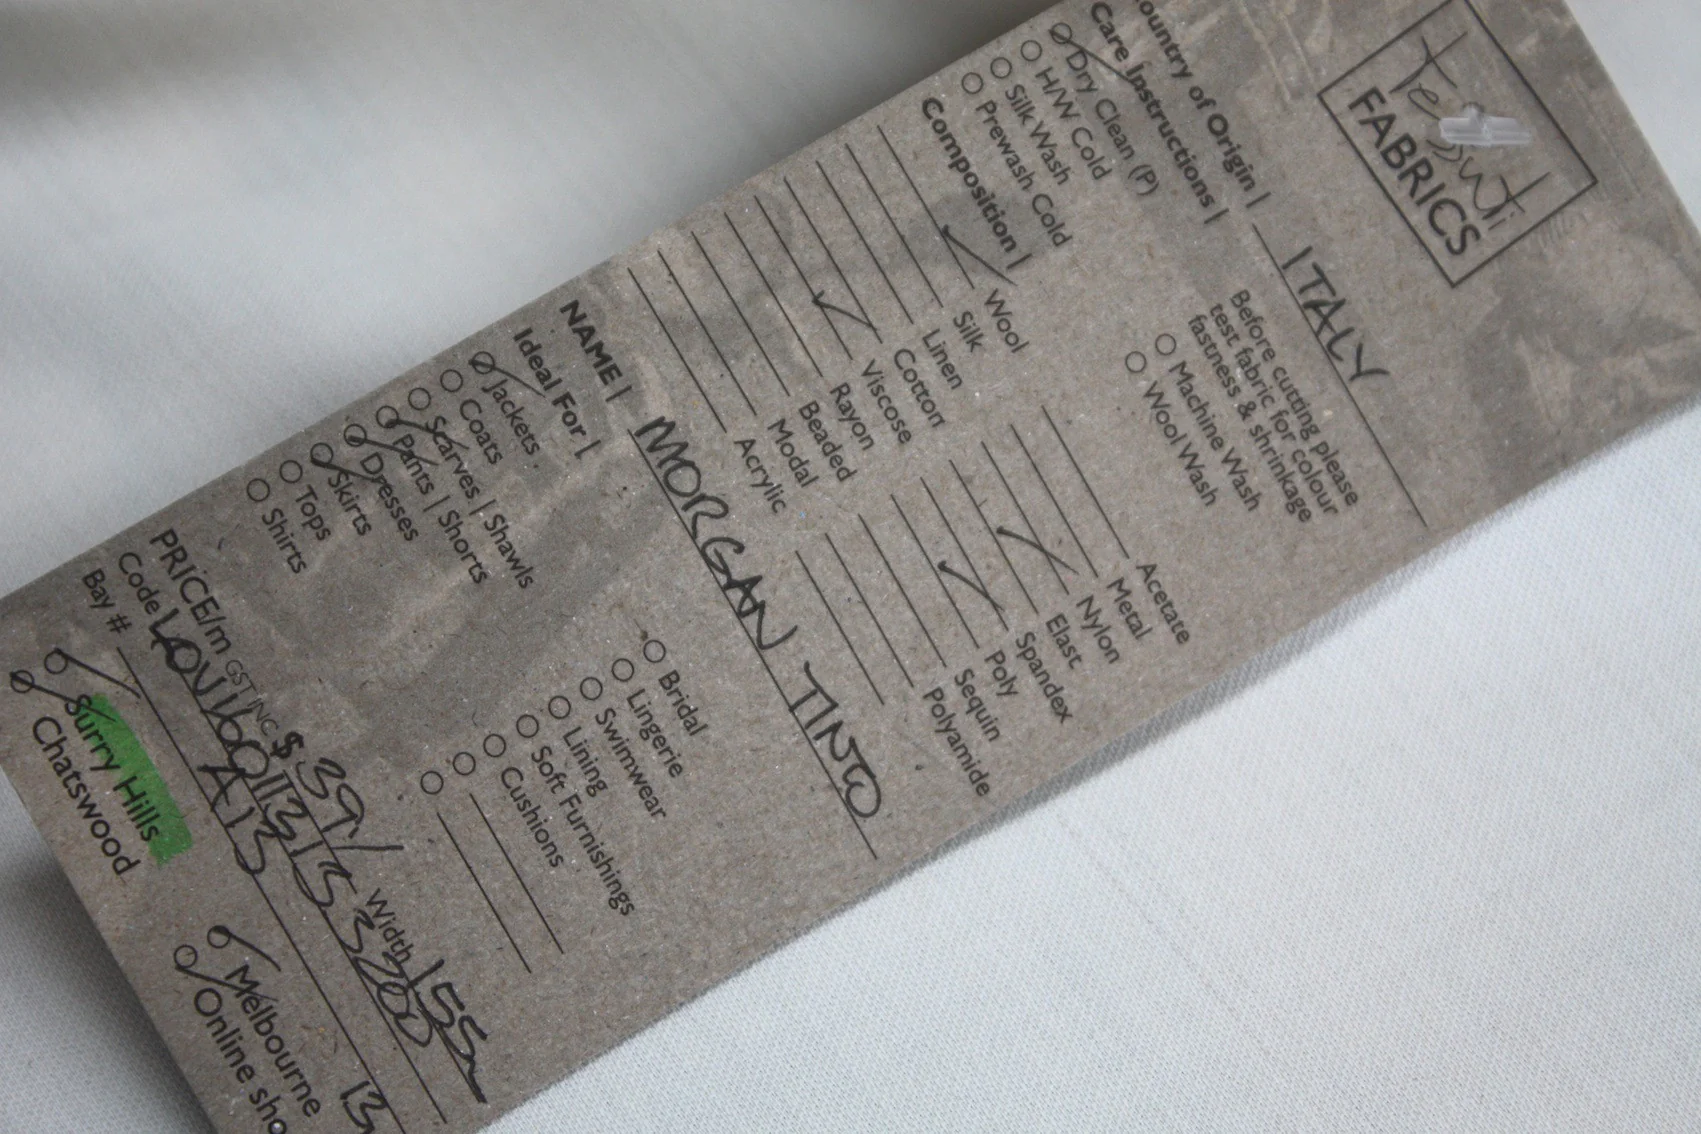 Tessuti
FABRICS
ountry of Origin | ITALY
Care Instructions |
Dry Clean (P)
H/W Cold
Silk Wash
Prewash Cold
Before cutting please
test fabric for colour
fastness & shrinkage
Machine Wash
Wool Wash
Composition |
Wool
Silk
Linen
Cotton
Viscose
Rayon
Beaded
Modal
Acrylic
Acetate
Metal
Nylon
Elast
Spandex
Poly
Sequin
Polyamide
NAME | MORGAN TINTO
Ideal For |
Jackets
Coats
Scarves | Shawls
Pants | Shorts
Dresses
Skirts
Tops
Shirts
Bridal
Lingerie
Swimwear
Lining
Soft Furnishings
Cushions
PRICE/m GST INC $ 39/ Width 155
Code
Bay # A13 13
Surry Hills
Chatswood
Melbourne
Online sho